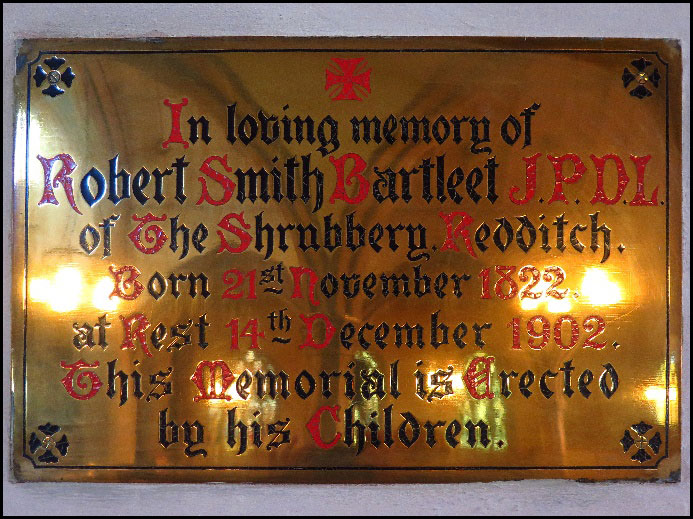 In loving memory of
Robert Smith Bartleet J.P.D.L.
of The Shrubbery, Redditch.
Born 21st November 1822.
at Rest 14th December 1902.
This Memorial is Erected
by his Children.